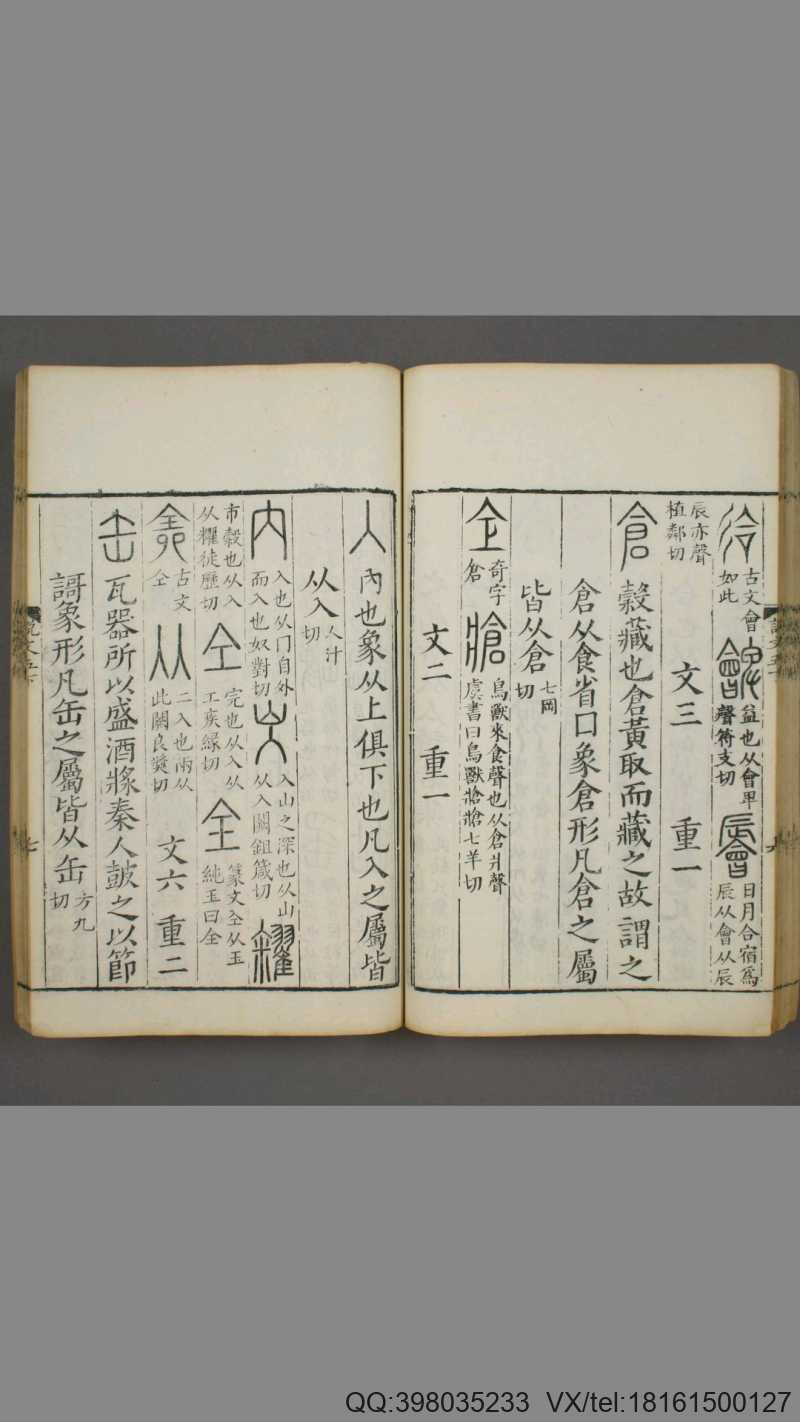 㣛古文會如此朇益也从會卑聲符支切𣍙日月合宿爲辰从會从辰
辰亦聲植鄰切 文三 重一
倉穀藏也倉黃取而藏之故謂之
倉从食省口象倉形凡倉之屬
皆从倉七岡切
仺奇字倉牄鳥獸來食聲也从倉爿聲虞書曰鳥獸牄牄七羊切
文二 重一
入內也象从上俱下也凡入之屬皆
从入人汁切
內入也从冂自外而入也奴對切㞥入山之深也从山从入闕鉏箴切糴
市穀也从入从䊮徒歷切仝完也从入从工疾緣切全篆文仝从玉純玉曰全
𠓴古文仝㒰二入也兩从此闕良獎切 文六 重二
缶瓦器所以盛酒漿秦人鼓之以節
謌象形凡缶之屬皆从缶方九切
七
QQ:398035233 VX/tel:18161500127